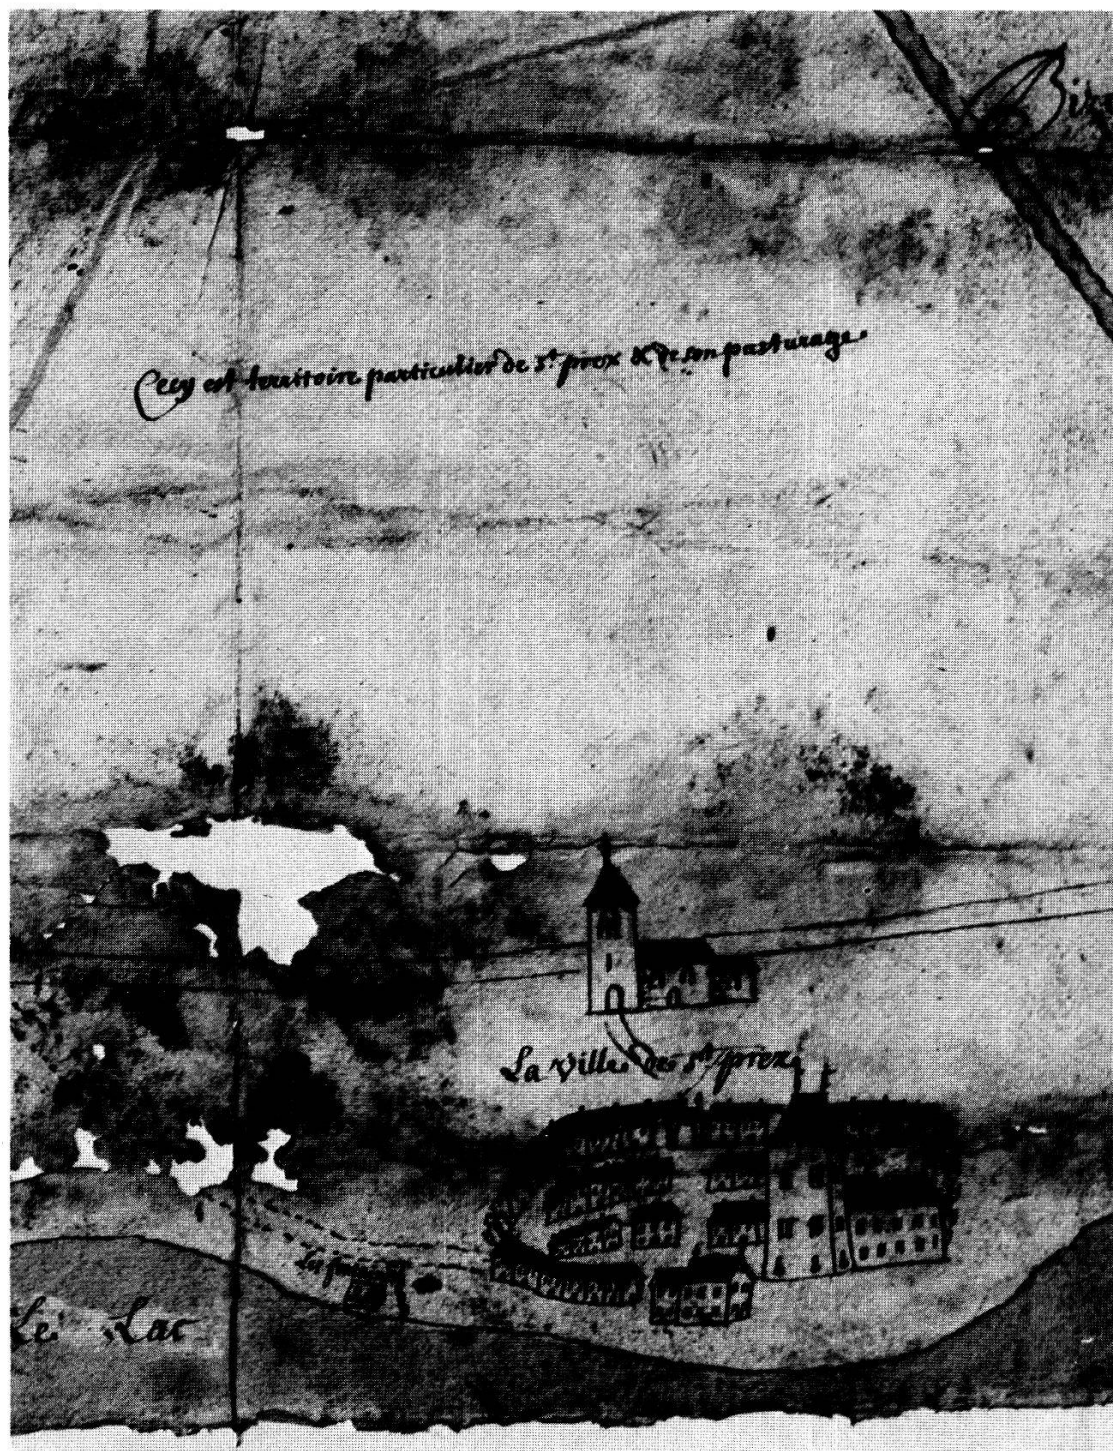 Cecy est territoire particulier de st prex & de son pasturage
La Ville de st prex
Le Lac